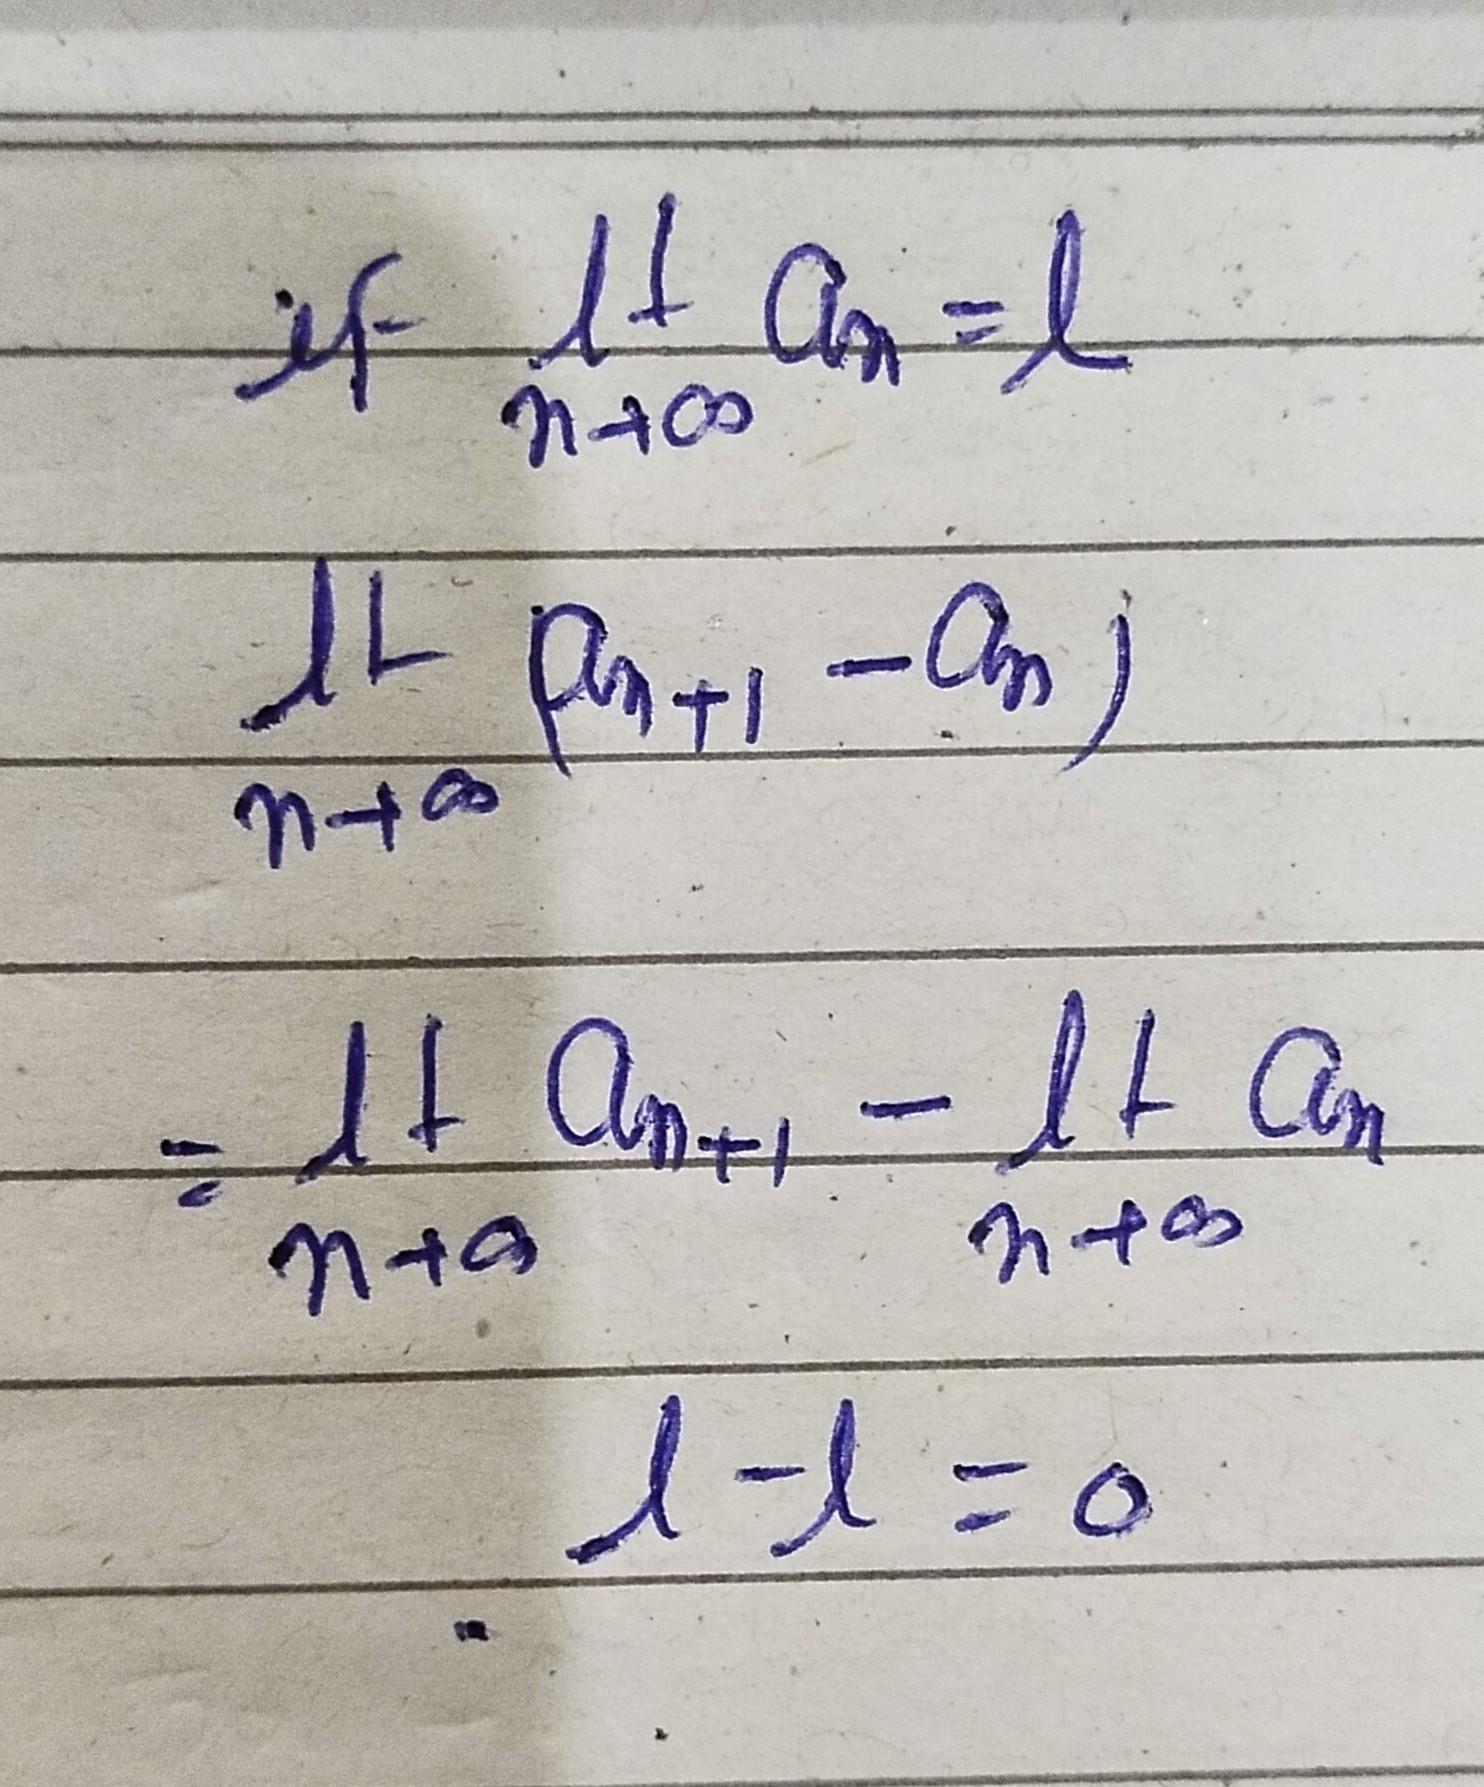 if lt aₙ = l
n→∞
lt (aₙ₊₁ - aₙ)
n→∞
= lt aₙ₊₁ - lt aₙ
n→∞ n→∞
l - l = 0